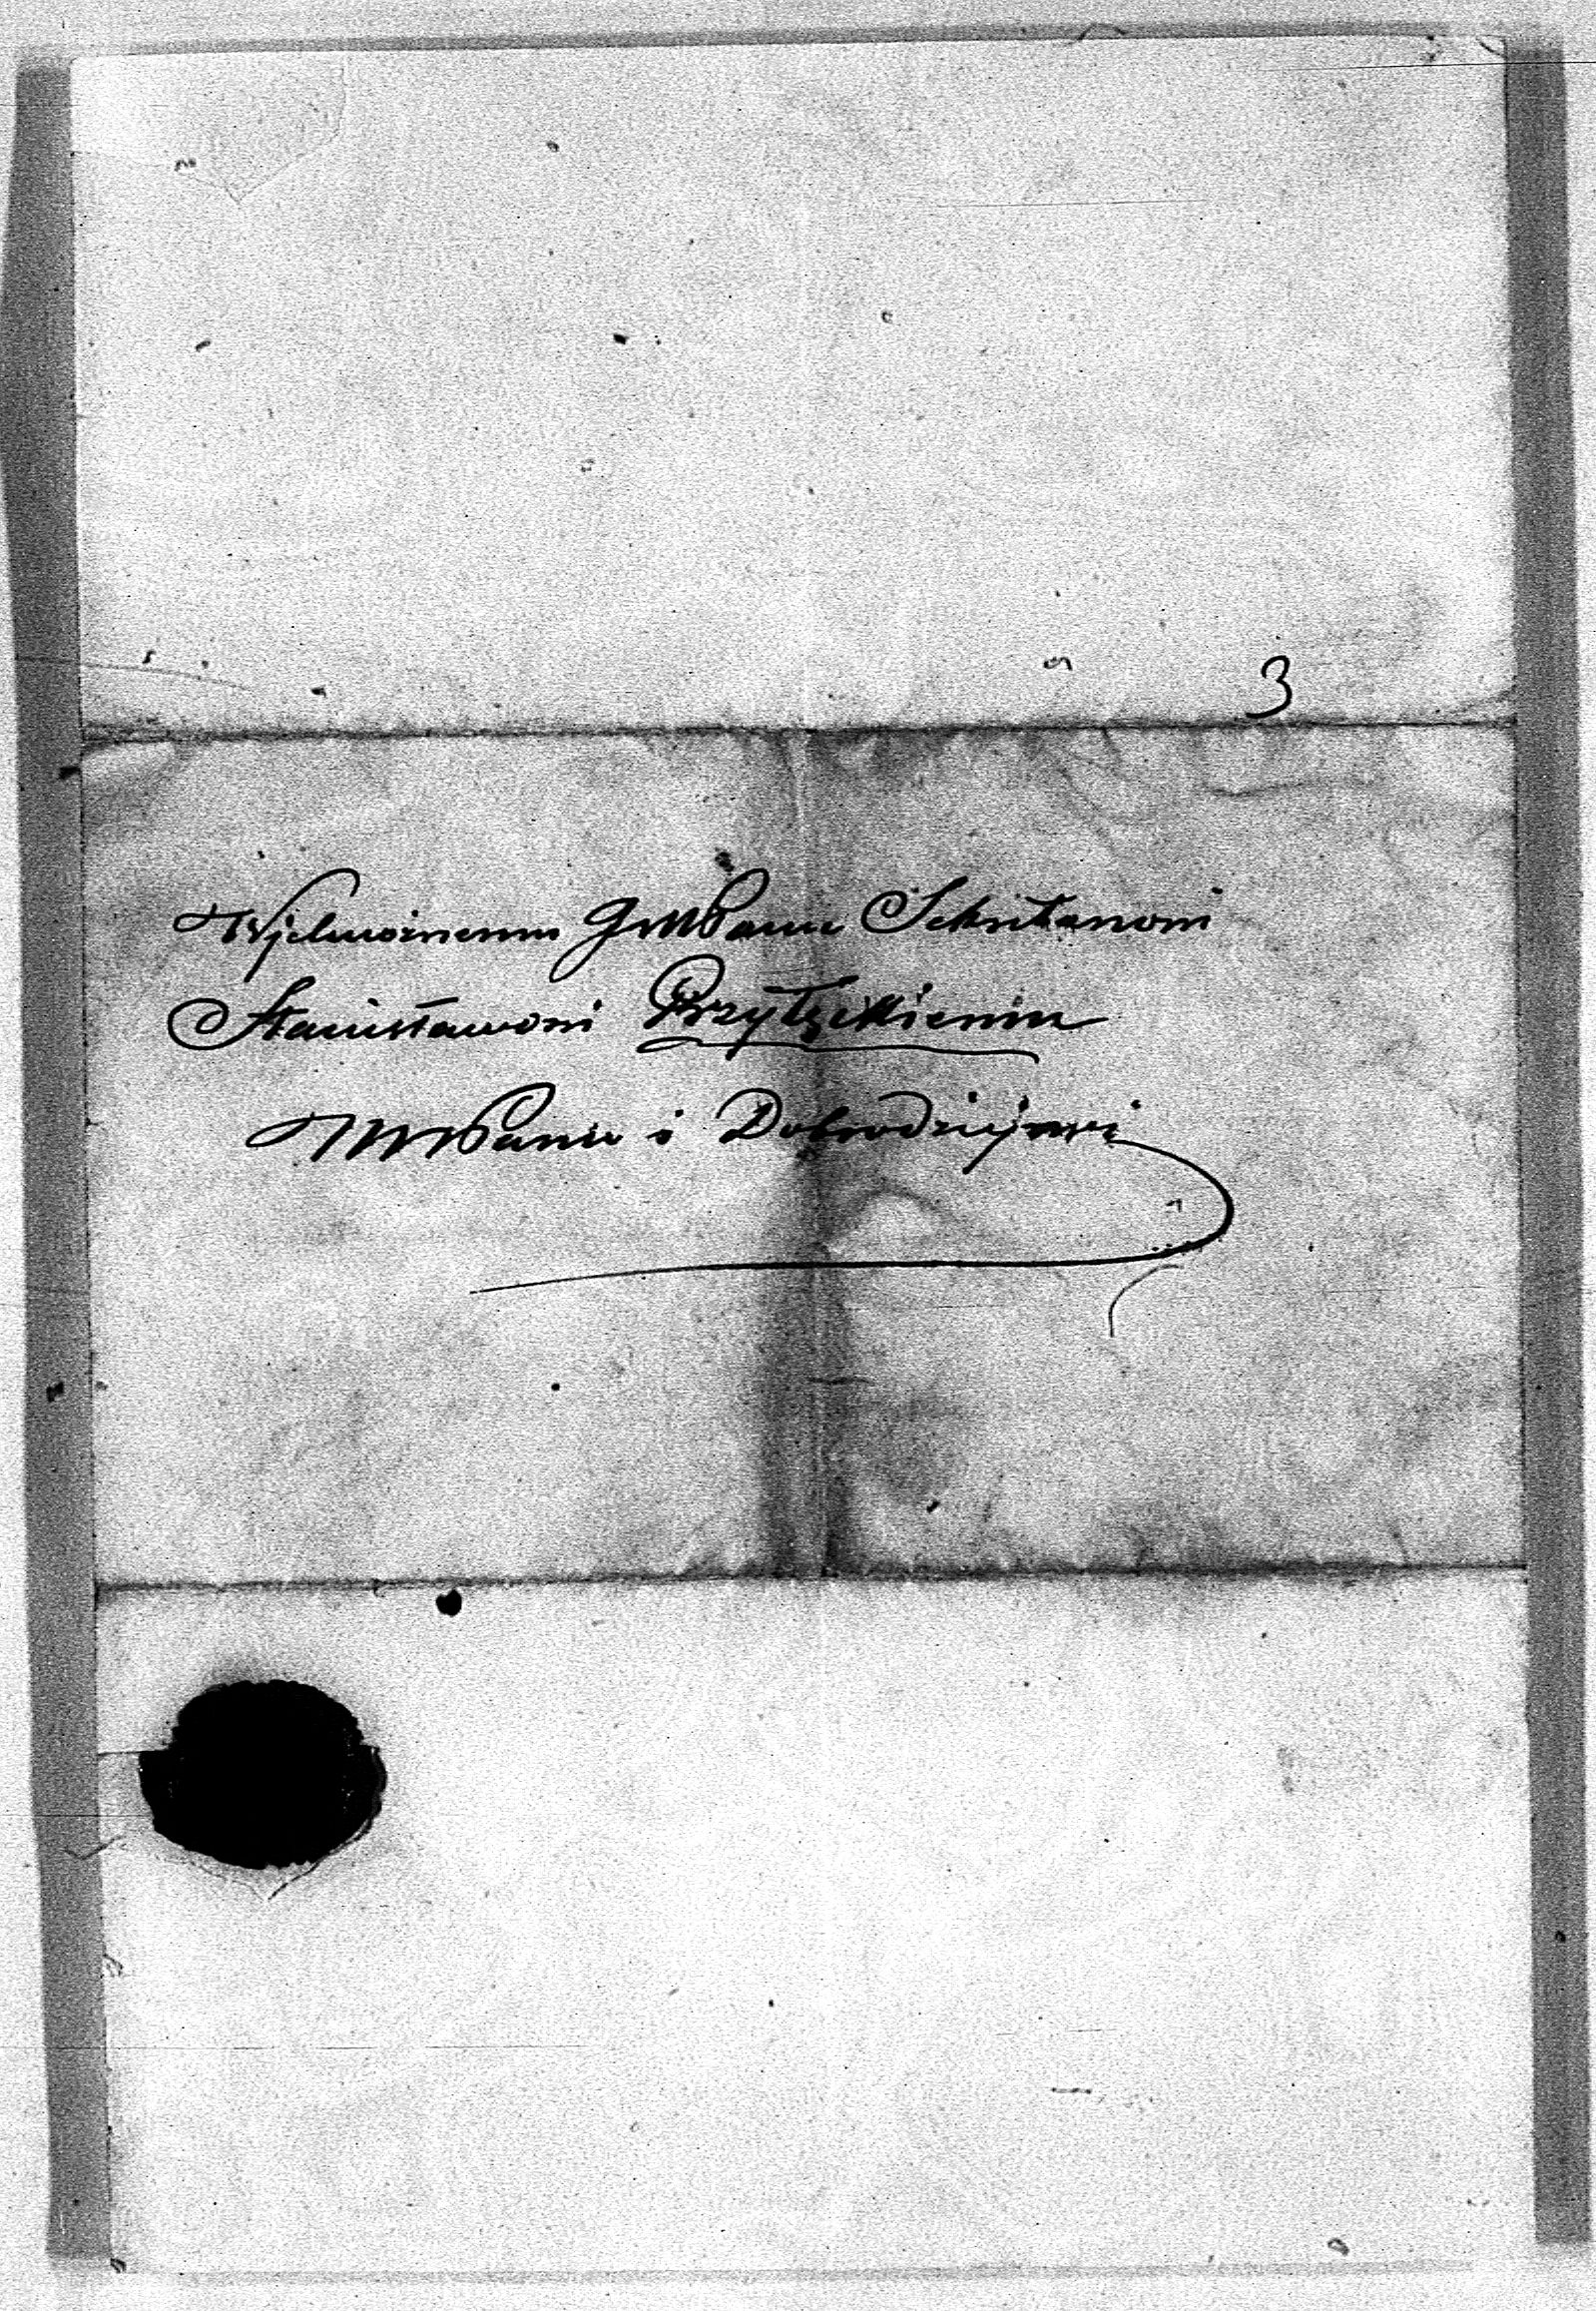 3
Wjelmożnemu JmWPanu Sekretarzowi
Stanisławowi Przyłęckiemu
MWPanu i Dobrodziejowi